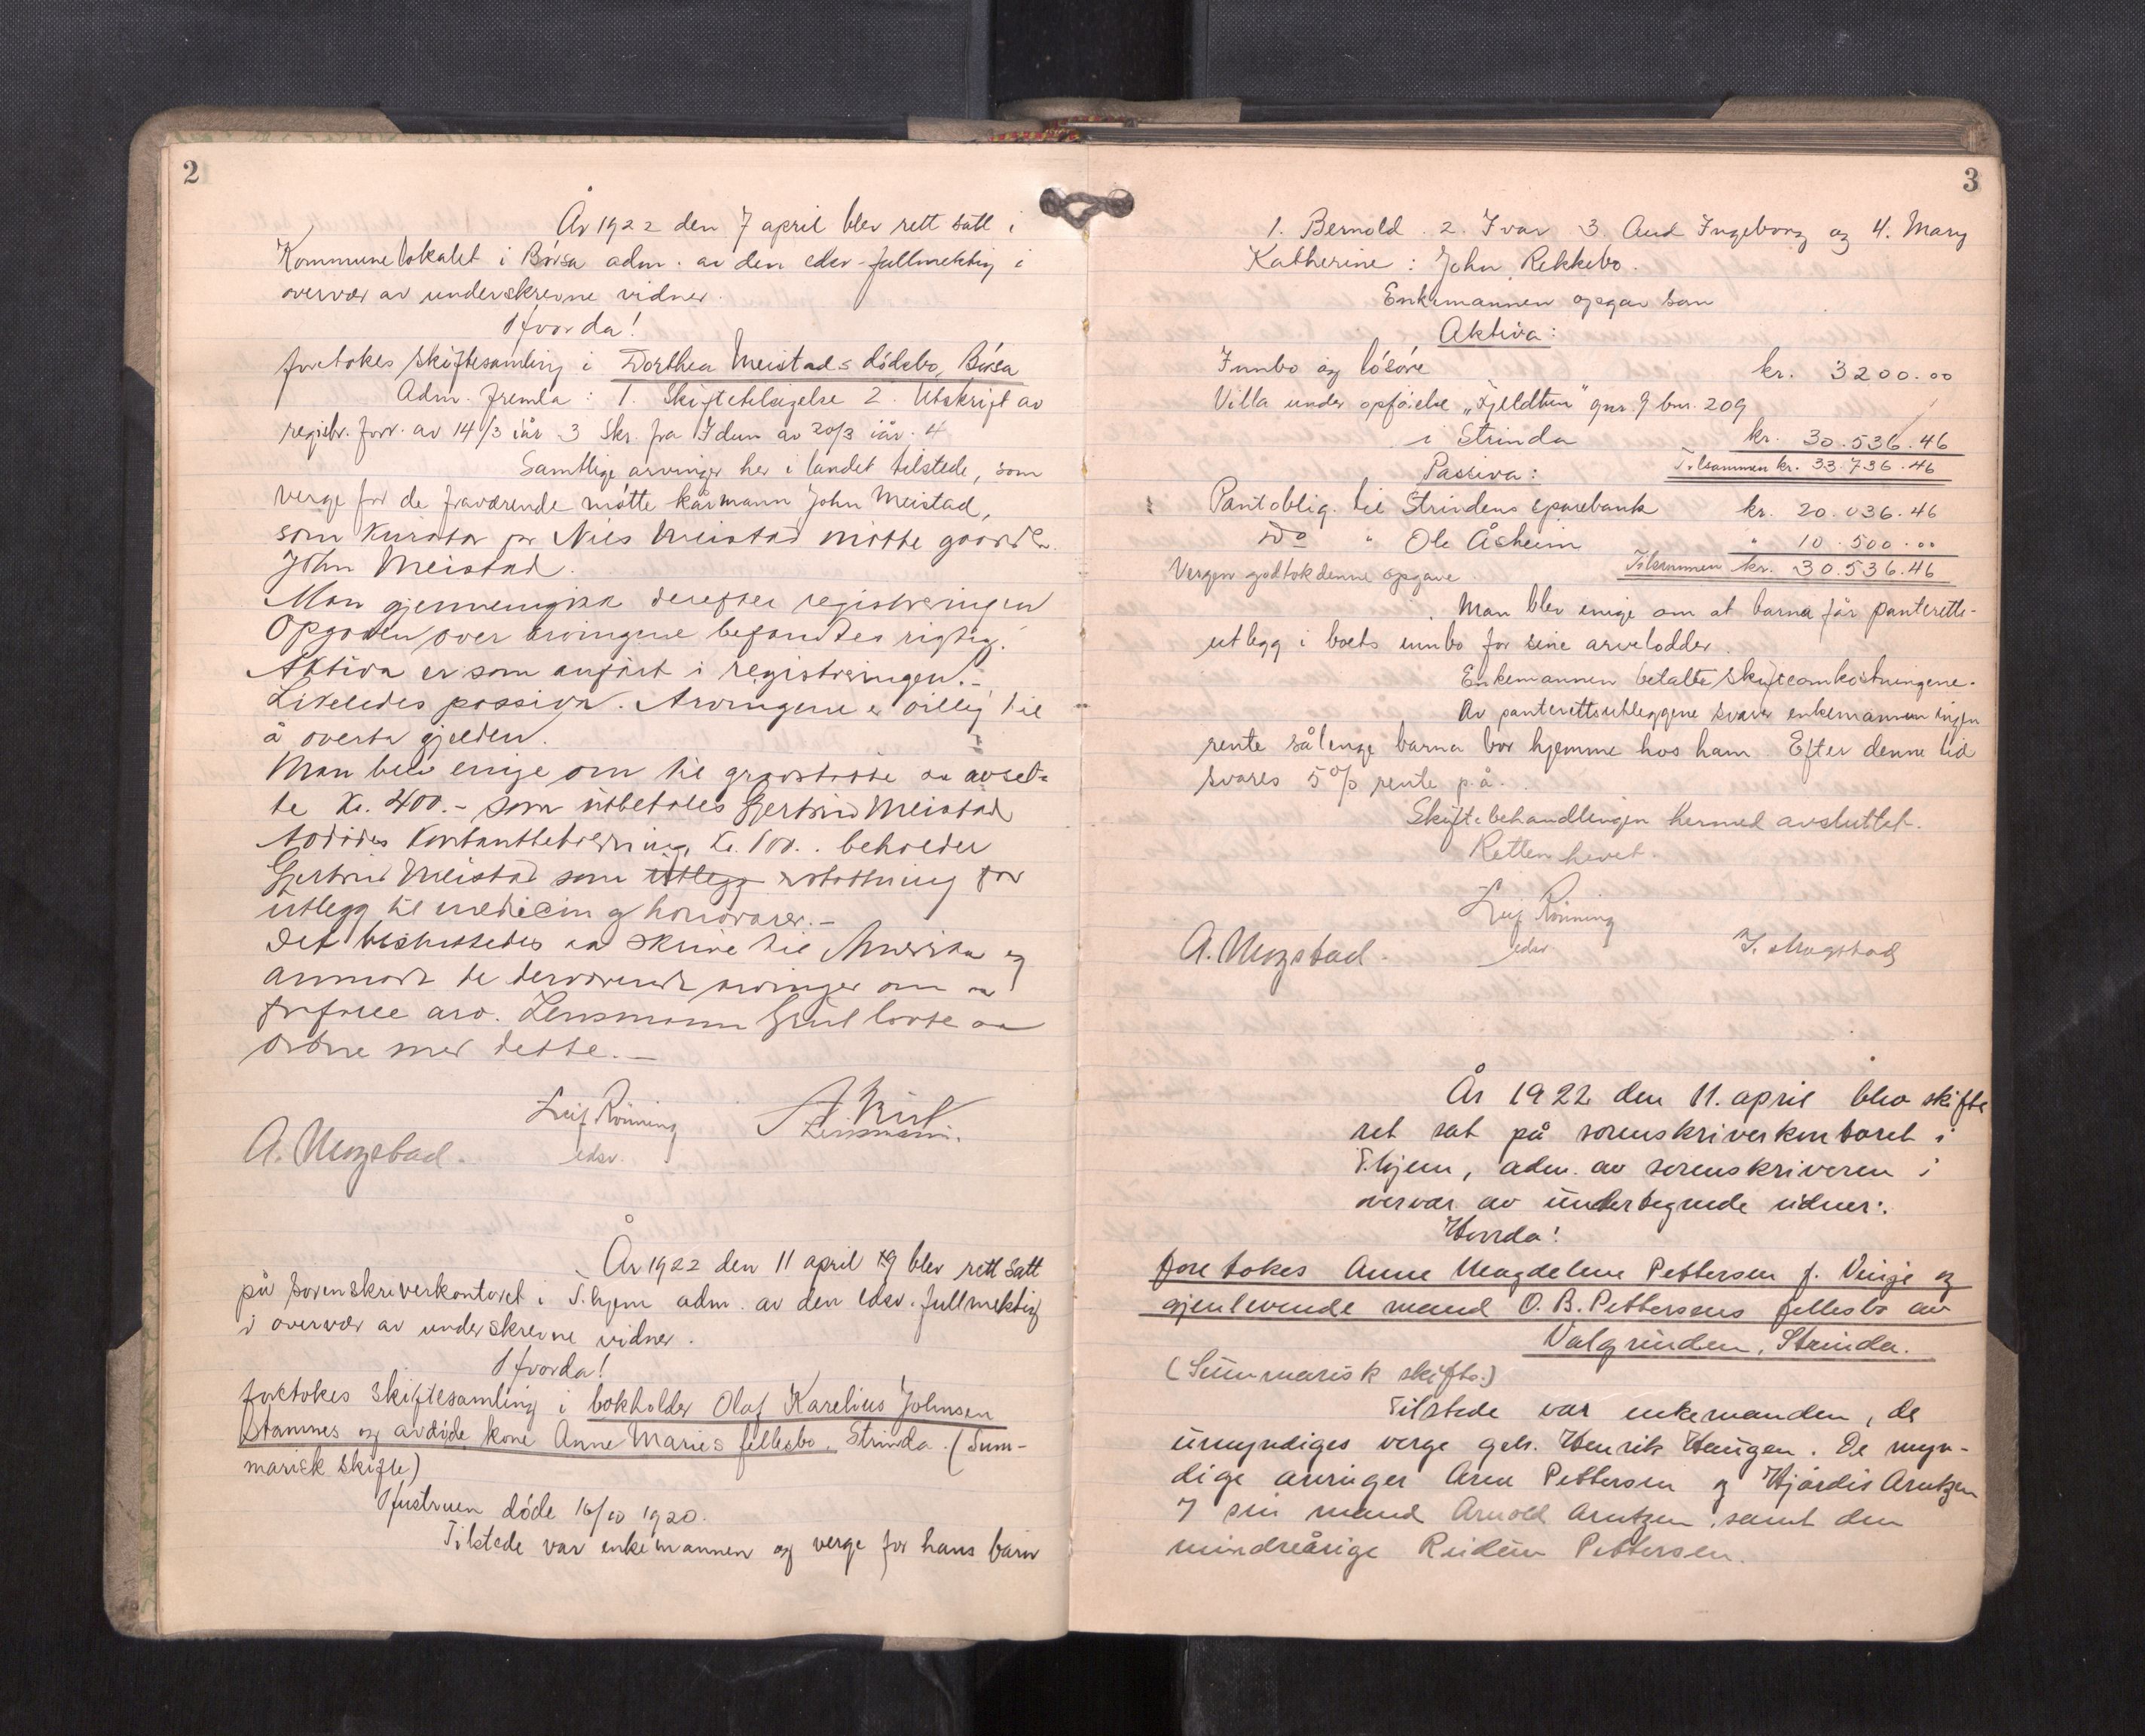 2
År 1922 den 7 april blev rett satt i
Kommunelokalet i Børsa adm. av den edsv. fullmektig i
overvær av underskrevne vidner.
Hvorda!
foretokes skiftesamling i Dorthea Meistads dødsbo, Børsa
Adm. fremla: 1. Skiftetilsigelse 2. Utskrift av
registr. forr. av 14/3 iår 3 Skr. fra Idun av 20/3 iår. 4
Samtlige arvinger her i landet tilstede, som
verge for de fraværende møtte kårmann John Meistad,
som Kurator for Nils Meistad møtte gaardbr.
John Meistad.
Man gjennemgikk derefter registreringen
Opgaven over arvingene befandtes rigtig.
Aktiva er som anført i registreringen.-
Likeledes passiva. Arvingene er villig til
å overta gjelden.
Man blev enige om til gravstøtte aa avset-
te Kr. 400.- som utbetales Gjertrud Meistad
Avdødes Kontantbeholdning, Kr. 100.. beholder
Gjertrud Meistad som utlegg erstattning for
utlegg til medicin og honorarer.-
Det besluttedes aa skrive til Amerika og
anmode de derværende arvinger om aa
frafalle arv. Lensmann Kirl lovte aa
ordne med dette.-
Leif Rönning
edsv.
A. Kirl
Lensmann.
A. Mogstad.
År 1922 den 11 april 19 blev rett satt
på sorenskriverkontoret i T.hjem adm. av den edsv. fullmektig
i overvær av underskrevne vidner.
Hvorda!
foretokes skiftesamling i bokholder Olaf Karelius Johnsen
Stamnes og avdøde kone Anne Maries fellesbo, Strinda. (Sum-
marisk skifte)
Hustruen døde 16/10 1920.
Tilstede var enkemannen og verge for hans barn
3
1. Bernold. 2. Ivar 3. Aud Ingeborg og 4. Mary
Katherine: John Rekkebo.
Enkemannen opgav som
Aktiva:
Innbo og løsøre kr. 3200.00
Villa under opførelse „Fjeldtun“ gnr. 9 bnr. 209
i Strinda kr. 30.536.46
Tilsammen kr. 33.736.46
Passiva:
Pantoblig. til Strindens Sparebank kr. 20.036.46
Do " Ole Åsheim " 10.500.00
Vergen godtok denne opgave Tilsammen kr. 30.536.46
Man blev enige om at barna får panteretts-
utlegg i boets innbo for sine arvelodder.
Enkemannen betalte skifteomkostningene.
Av panterettsutleggene svarer enkemannen ingen
rente sålenge barna bor hjemme hos ham Efter denne tid
svares 5% rente p.å.
Skiftebehandlingen hermed avsluttet.
Retten hevet.
Leif Rönning
edsv.
A. Mogstad. J. Mogstad
År 1922 den 11. april blev skifte
ret sat på sorenskriverkontoret i
T.hjem, adm. av sorenskriveren i
overvær av undertegnede vidner:.
Hvorda!
foretokes Anne Magdelene Pettersen f. Vinje og
gjenlevende mand O. B. Pettersens fellesbo av
Valgrinden, Strinda.
(Summarisk skifte.)
Tilstede var enkemanden, de
umyndiges verge gdr. Henrik Haugan. De myn-
dige arvinger Arne Pettersen og Hjørdis Arntzen
7 sin mand Arnold Arntzen, samt den
mindreårige Reidun Pettersen.